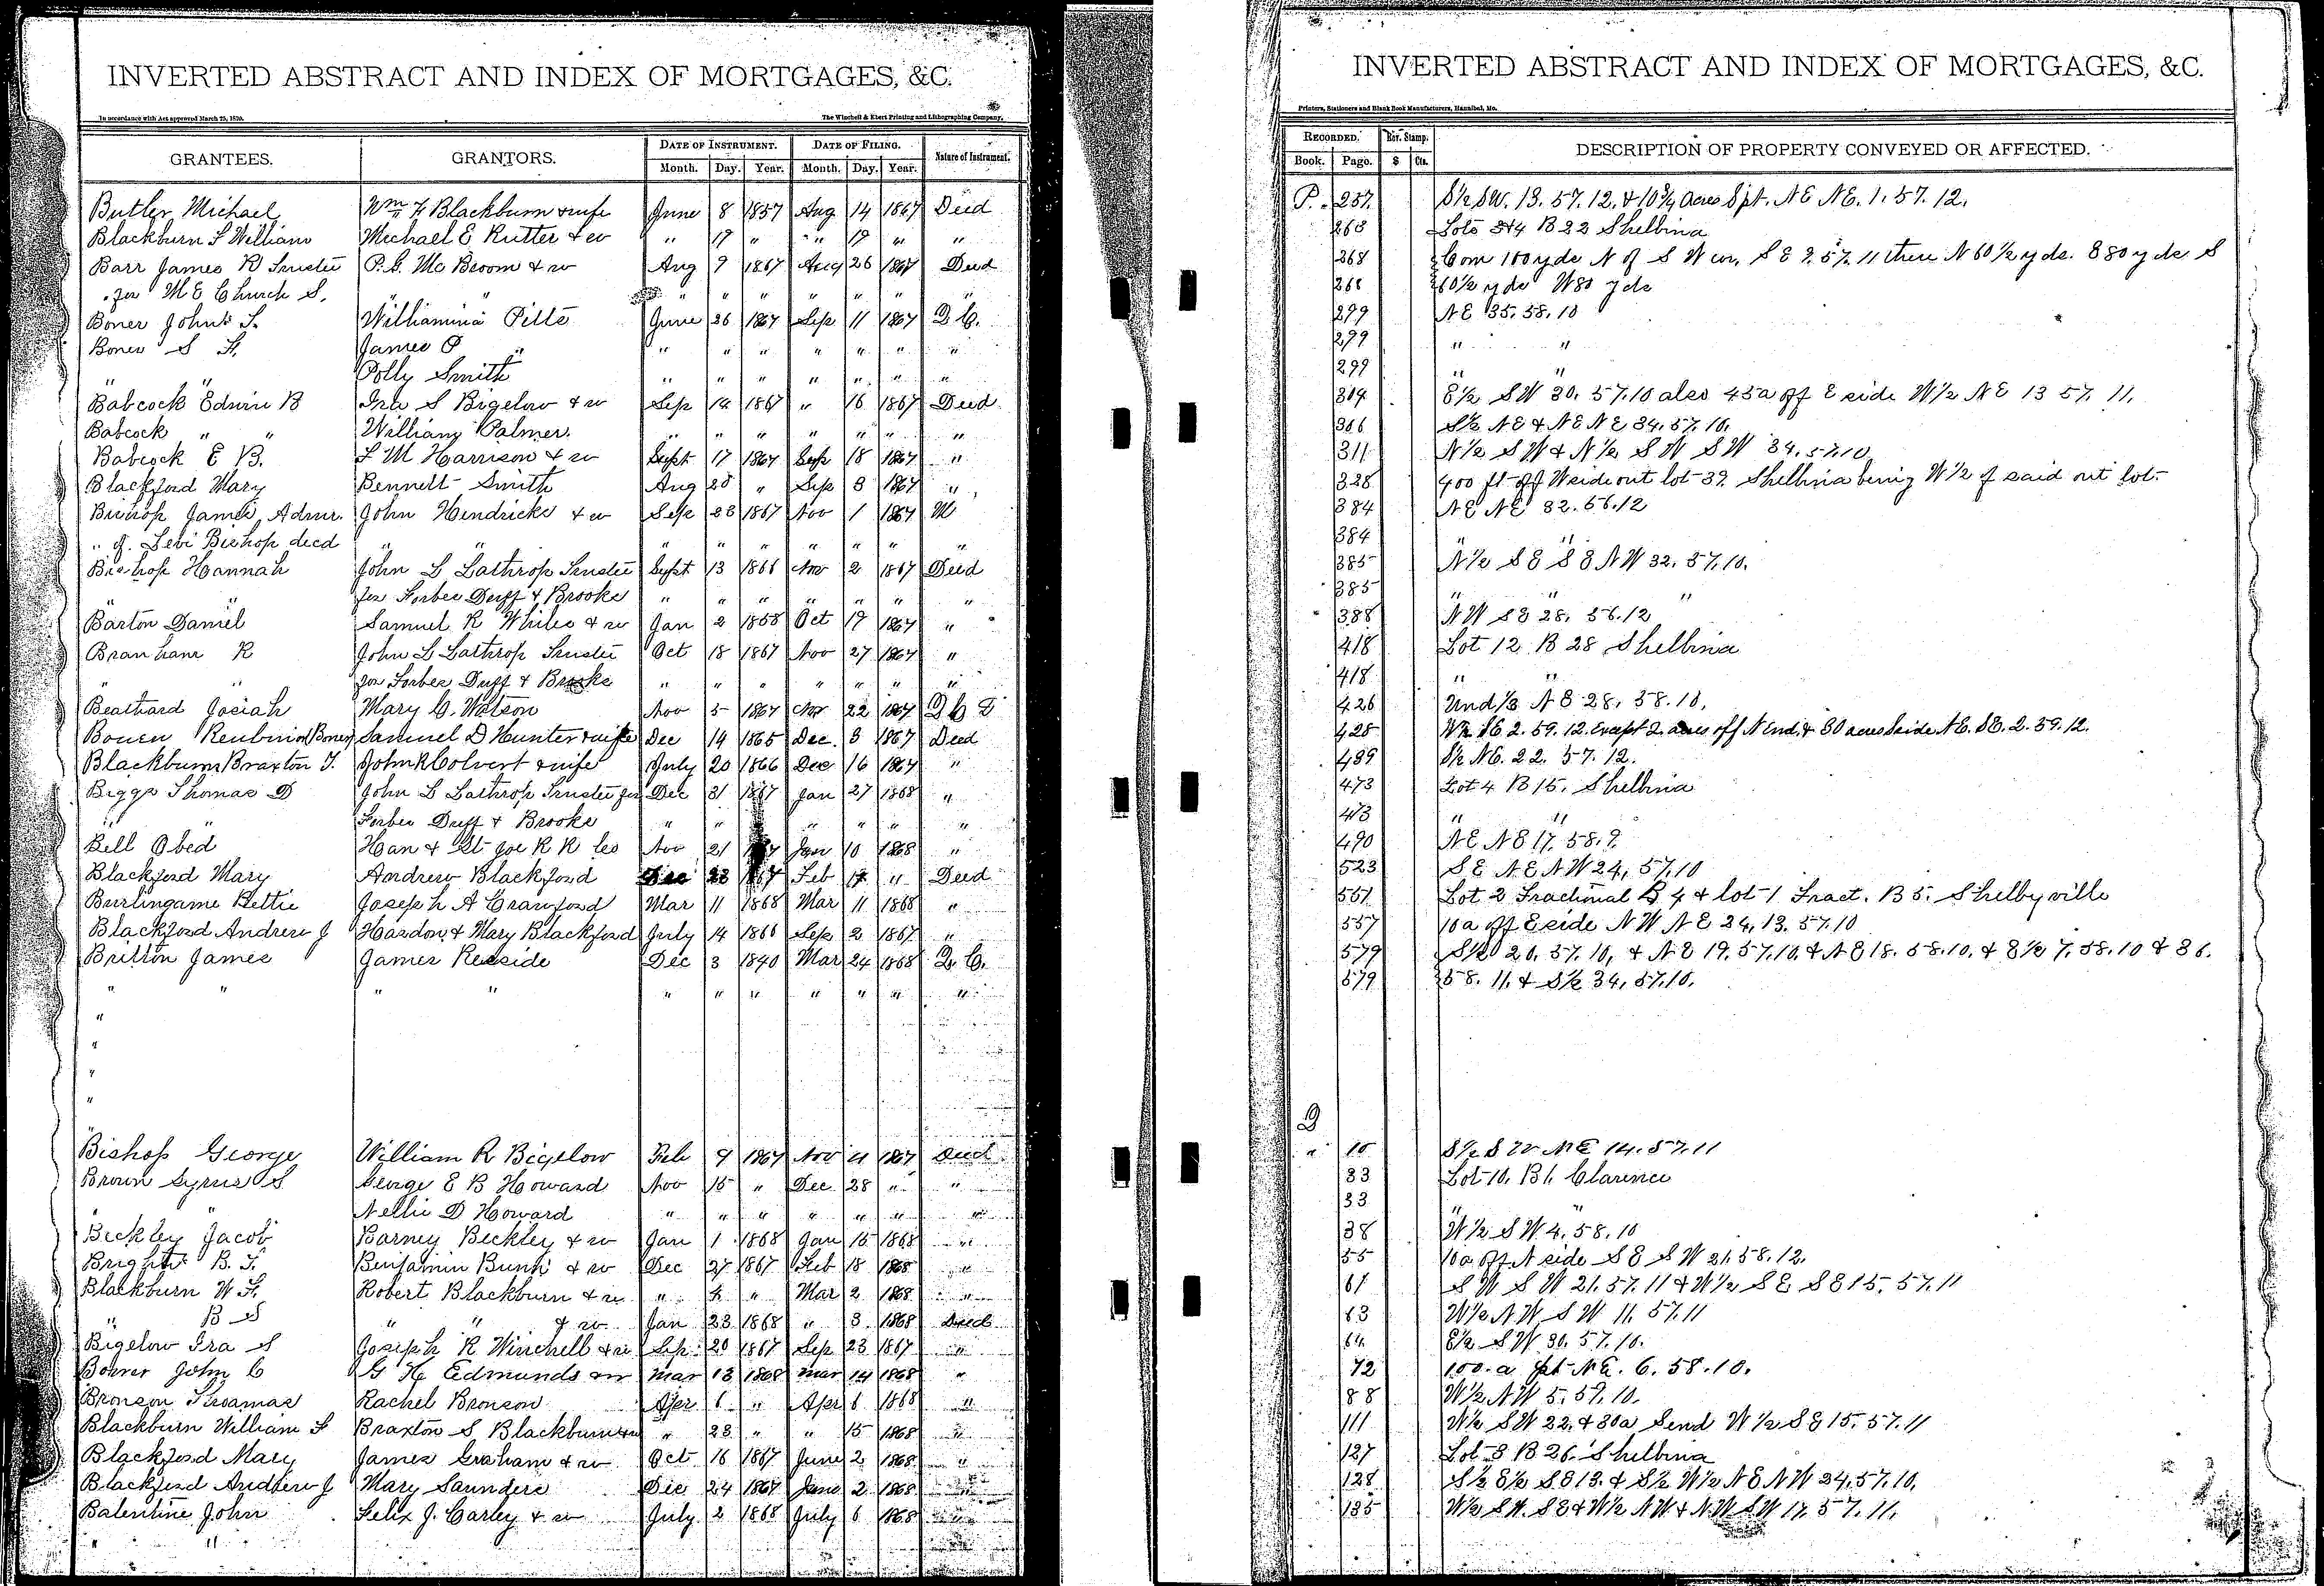 INVERTED ABSTRACT AND INDEX OF MORTGAGES, &C.
In accordance with Act approved March 25, 1870.
The Winchell & Ebert Printing and Lithographing Company,
GRANTEES. GRANTORS. DATE OF INSTRUMENT. DATE OF FILING. Nature of Instrument.
Month. Day. Year. Month. Day. Year.
Butler Michael Wm F Blackburn & wife June 8 1857 Aug 14 1867 Deed
Blackburn F William Michael E Rutter & w " 19 " " 19 " "
Barr James R Trustee P. G. Mc Broom & w Aug 9 1867 Aug 26 1867 Deed
for M E Church S. " " " " " " " "
Boner John S. Williamina Pitts June 26 1867 Sep 11 1867 Q C.
Boner S F. James P " " " " " " " "
" " Polly Smith " " " " " " "
Babcock Edwin B Ira S Bigelow & w Sep 14 1867 " 16 1867 Deed
Babcock " " William Palmer. " " " " " " "
Babcock E B. L M Harrison & w Sept 17 1867 Sep 18 1867 "
Blackford Mary Bennett Smith Aug 28 " Sep 3 1867 "
Bishop James Admr. John Hendricks & w Sep 23 1867 Nov 1 1867 M
" of Levi Bishop decd " " " " " " " " "
Bishop Hannah John L Lathrop Trustee Sept 13 1866 Nov 2 1867 Deed
" " for Forbes Duff & Brooks " " " " " " "
Barton Daniel Samuel R White & w Jan 2 1858 Oct 19 1867 "
Branham R John L Lathrop Trustee Oct 18 1867 Nov 27 1867 "
" " for Forbes Duff & Brooks " " " " " " "
Beathard Josiah Mary C. Watson Nov 5 1867 Nov 22 1867 Q C D
Bowen Reubin (or Boney) Samuel D Hunter & wife Dec 14 1865 Dec. 3 1867 Deed
Blackburn Braxton T. John R Colvert & wife July 20 1866 Dec 16 1867 "
Biggs Thomas D John L Lathrop Trustee for Dec 31 1867 Jan 27 1868 "
" " Forbes Duff & Brooks " " " " " "
Bell Obed Han & St Joe R R Co Nov 21 Jan 10 1868 "
Blackford Mary Andrew Blackford Dec 23 1867 Feb 17 " Deed
Burlingame Bettie Joseph A Crawford Mar 11 1868 Mar 11 1868 "
Blackford Andrew J Haydon & Mary Blackford July 14 1866 Sep 2 1867 "
Britton James James Reeside Dec 3 1840 Mar 24 1868 Q. C.
" " " " " " " " " " "
"
"
"
"
Bishop George William R Bigelow Feb 9 1867 Nov 11 1867 Deed
Brown Syrus S George E B Howard Nov 15 " Dec 28 " "
" " Nellie D Howard " " " " " " "
Beckley Jacob Barney Beckley & w Jan 1 1868 Jan 15 1868 "
Bright B. F. Benjamin Bunn & w Dec 27 1867 Feb 18 1868 "
Blackburn W F. Robert Blackburn & w " " Mar 2 1868 "
" B S " " & w Jan 23 1868 " 3 1868 Deed
Bigelow Ira S Joseph R Winchell & w Sep 20 1867 Sep 23 1867 "
Bohrer John C G H Edmunds & w Mar 13 1868 Mar 14 1868 "
Bronson Thoamas Rachel Bronson Apr 6 " Apr 6 1868 "
Blackburn William F Braxton S Blackburn & w " 23 " " 15 1868 "
Blackford Mary James Graham & w Oct 16 1867 June 2 1868 "
Blackford Andrew J Mary Saunders Dec 24 1867 June 2 1868
Balentine John Felix J. Carley & w July 2 1868 July 6 1868
" "
INVERTED ABSTRACT AND INDEX OF MORTGAGES, &C.
Printers, Stationers and Blank Book Manufacturers, Hannibal, Mo.
RECORDED. Rev. Stamp. DESCRIPTION OF PROPERTY CONVEYED OR AFFECTED.
Book. Page. $ Cts.
P. 257. S½ SW. 13. 57. 12. & 10¾ acres S pt. NE NE. 1. 57. 12.
263 Lots 3&4 B 22 Shelbina
268 Com 100 yds N of S W cor, S E 9. 57. 11 thence N 60½ yds. E 80 yds S
268 60½ yds W 80 yds
299 NE 35. 58. 10
299 " "
299 " "
304 E½ SW 30. 57. 10 also 45a off E side W½ NE 13 57. 11.
306 S½ NE & NE NE 34. 57. 10.
311 N½ SW & N½ SW SW 34. 57. 10
328 400 ft off W side out lot 32 Shelbina being W½ of said out lot.
384 NE NE 32. 56. 12
384 "
385 N½ SE SE NW 32. 57. 10.
385 " " "
388 NW SE 28. 56. 12
418 Lot 12 B 28 Shelbina
418 " "
426 Und ⅓ NE 28. 58. 10.
428 W½ SE 2. 59. 12. Except 2 acres off N End, & 30 acres S side NE. SE. 2. 59. 12.
439 S½ NE. 22. 57. 12.
473 Lot 4 B 15. Shelbina
473 " "
490 NE NE 17. 58. 9.
523 SE NE NW 24, 57. 10
551 Lot 2 Fractional B 4 & lot 1 Fract. B 5. Shelbyville
557 10a off E side NW NE 24, 13. 57. 10
579 S½ 20. 57. 10, & NE 19. 57. 10. & NE 18. 58. 10. & E½ 7. 58. 10 & 36.
579 58. 11. & S½ 34, 57. 10.
Q
" 10 S½ SW NE 14. 57. 11
33 Lot 10. B 1. Clarence
33 " "
38 W½ SW 4. 58. 10
55 10a off N side SE SW 21. 58. 12.
61 SW SW 21. 57. 11 & W½ SE SE 15. 57. 11
63 W½ NW SW 11. 57. 11
64 E½ SW 30. 57. 10.
72 100. a pt NE. 6. 58. 10.
88 W½ NW 5. 59. 10.
111 W½ SW 22. & 30a S end W½ SE 15. 57. 11
127 Lot 3 B 26. Shelbina
128 S½ E½ SE 13. & S½ W½ NE NW 24. 57. 10.
135 W½ SW. SE & W½ NW & NW SW 17. 57. 11.